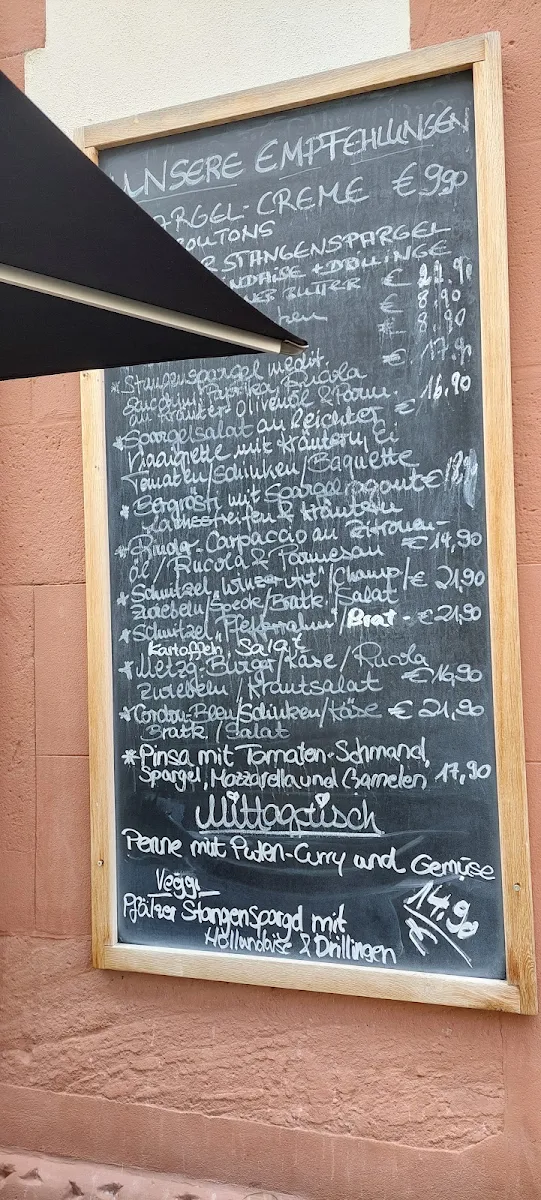 UNSERE EMPFEHLUNGEN
ARGEL-CREME €9,90
ROUTONS
STANGENSPARGEL
NDAISE + DRILLINGE
BUTTER € 22.90
€ 8,90
€ 8,90
*Stangenspargel medit. € 17.90
Paprika, Rucola
an Kräuter Olivenöl & Parm.
*Spargelsalat an leichter € 16,90
Vinaigrette mit Kräutern, Ei
Tomaten/Schinken/Baguette
*Bergrösti mit Spargelragout €
Lachsstreifen & Kräutern
*Rinder-Carpaccio an Zitronen-
öl/Rucola & Parmesan €14,90
*Schnitzel "Winzer Art"/Champ/ € 21,90
Zwiebeln/Speck/Bratk/Salat
*Schnitzel "Pfefferrahm"/Brat- €21,90
Kartoffeln Salat
*Metzg.Burger/Käse/Rucola
Zwiebeln/Krautsalat €16,90
*Cordon-Bleu/Schinken/Käse € 21,90
Bratk/Salat
*Pinsa mit Tomaten-Schmand,
Spargel, Mozzarella und Garnelen 17,90
Mittagstisch
Penne mit Puten-Curry und Gemüse
Veggi
14,90
Pfälzer Stangenspargel mit
Hollandaise & Drillingen